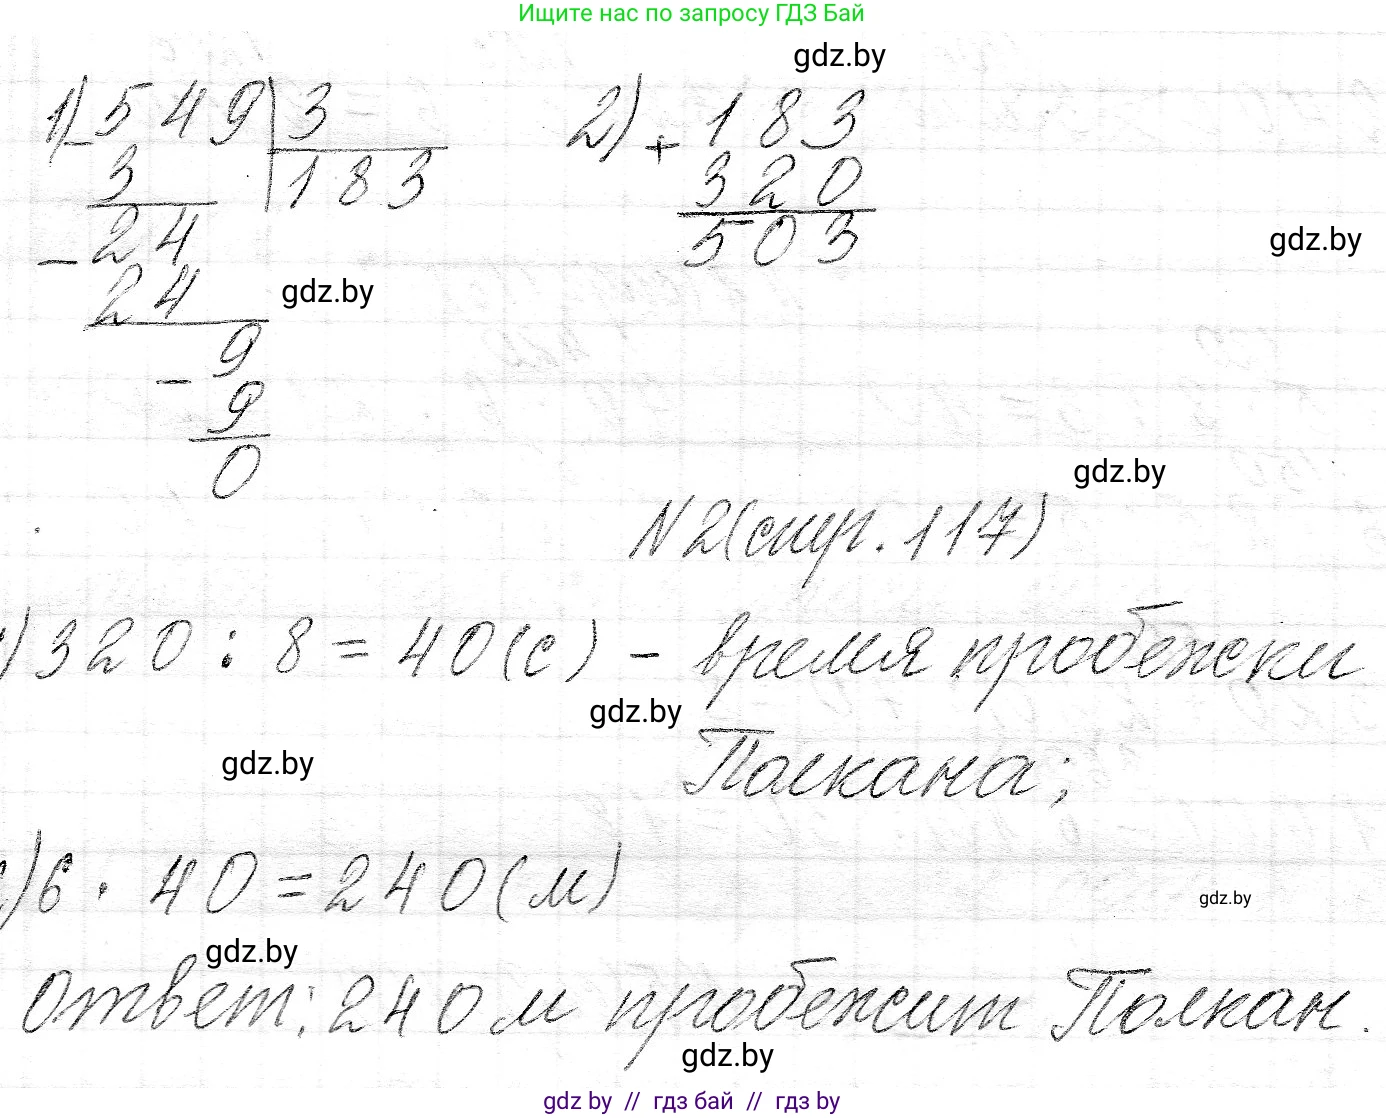 Ищите нас по запросу ГДЗ Бай
gdz.by
1) - 549 | 3
3 | 183
- 24
24
- 9
9
0
2) + 183
320
503
gdz.by
gdz.by
gdz.by
N 2 (стр. 117)
) 320 : 8 = 40 (с) - время пробежки
gdz.by
Полкана;
gdz.by
) 6 · 40 = 240 (м)
gdz.by
gdz.by
Ответ: 240 м пробежит Полкан.
gdz.by
gdz by // гдз бай // гдз by